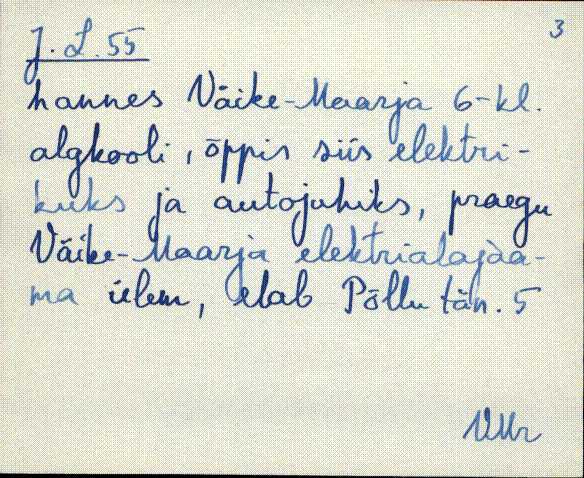 3
J. L. 55
hannes Väike-Maarja 6-kl.
algkooli, õppis siis elektri-
kuks ja autojuhiks, praegu
Väike-Maarja elektrialajaa-
ma ülem, elab Põllu tän. 5